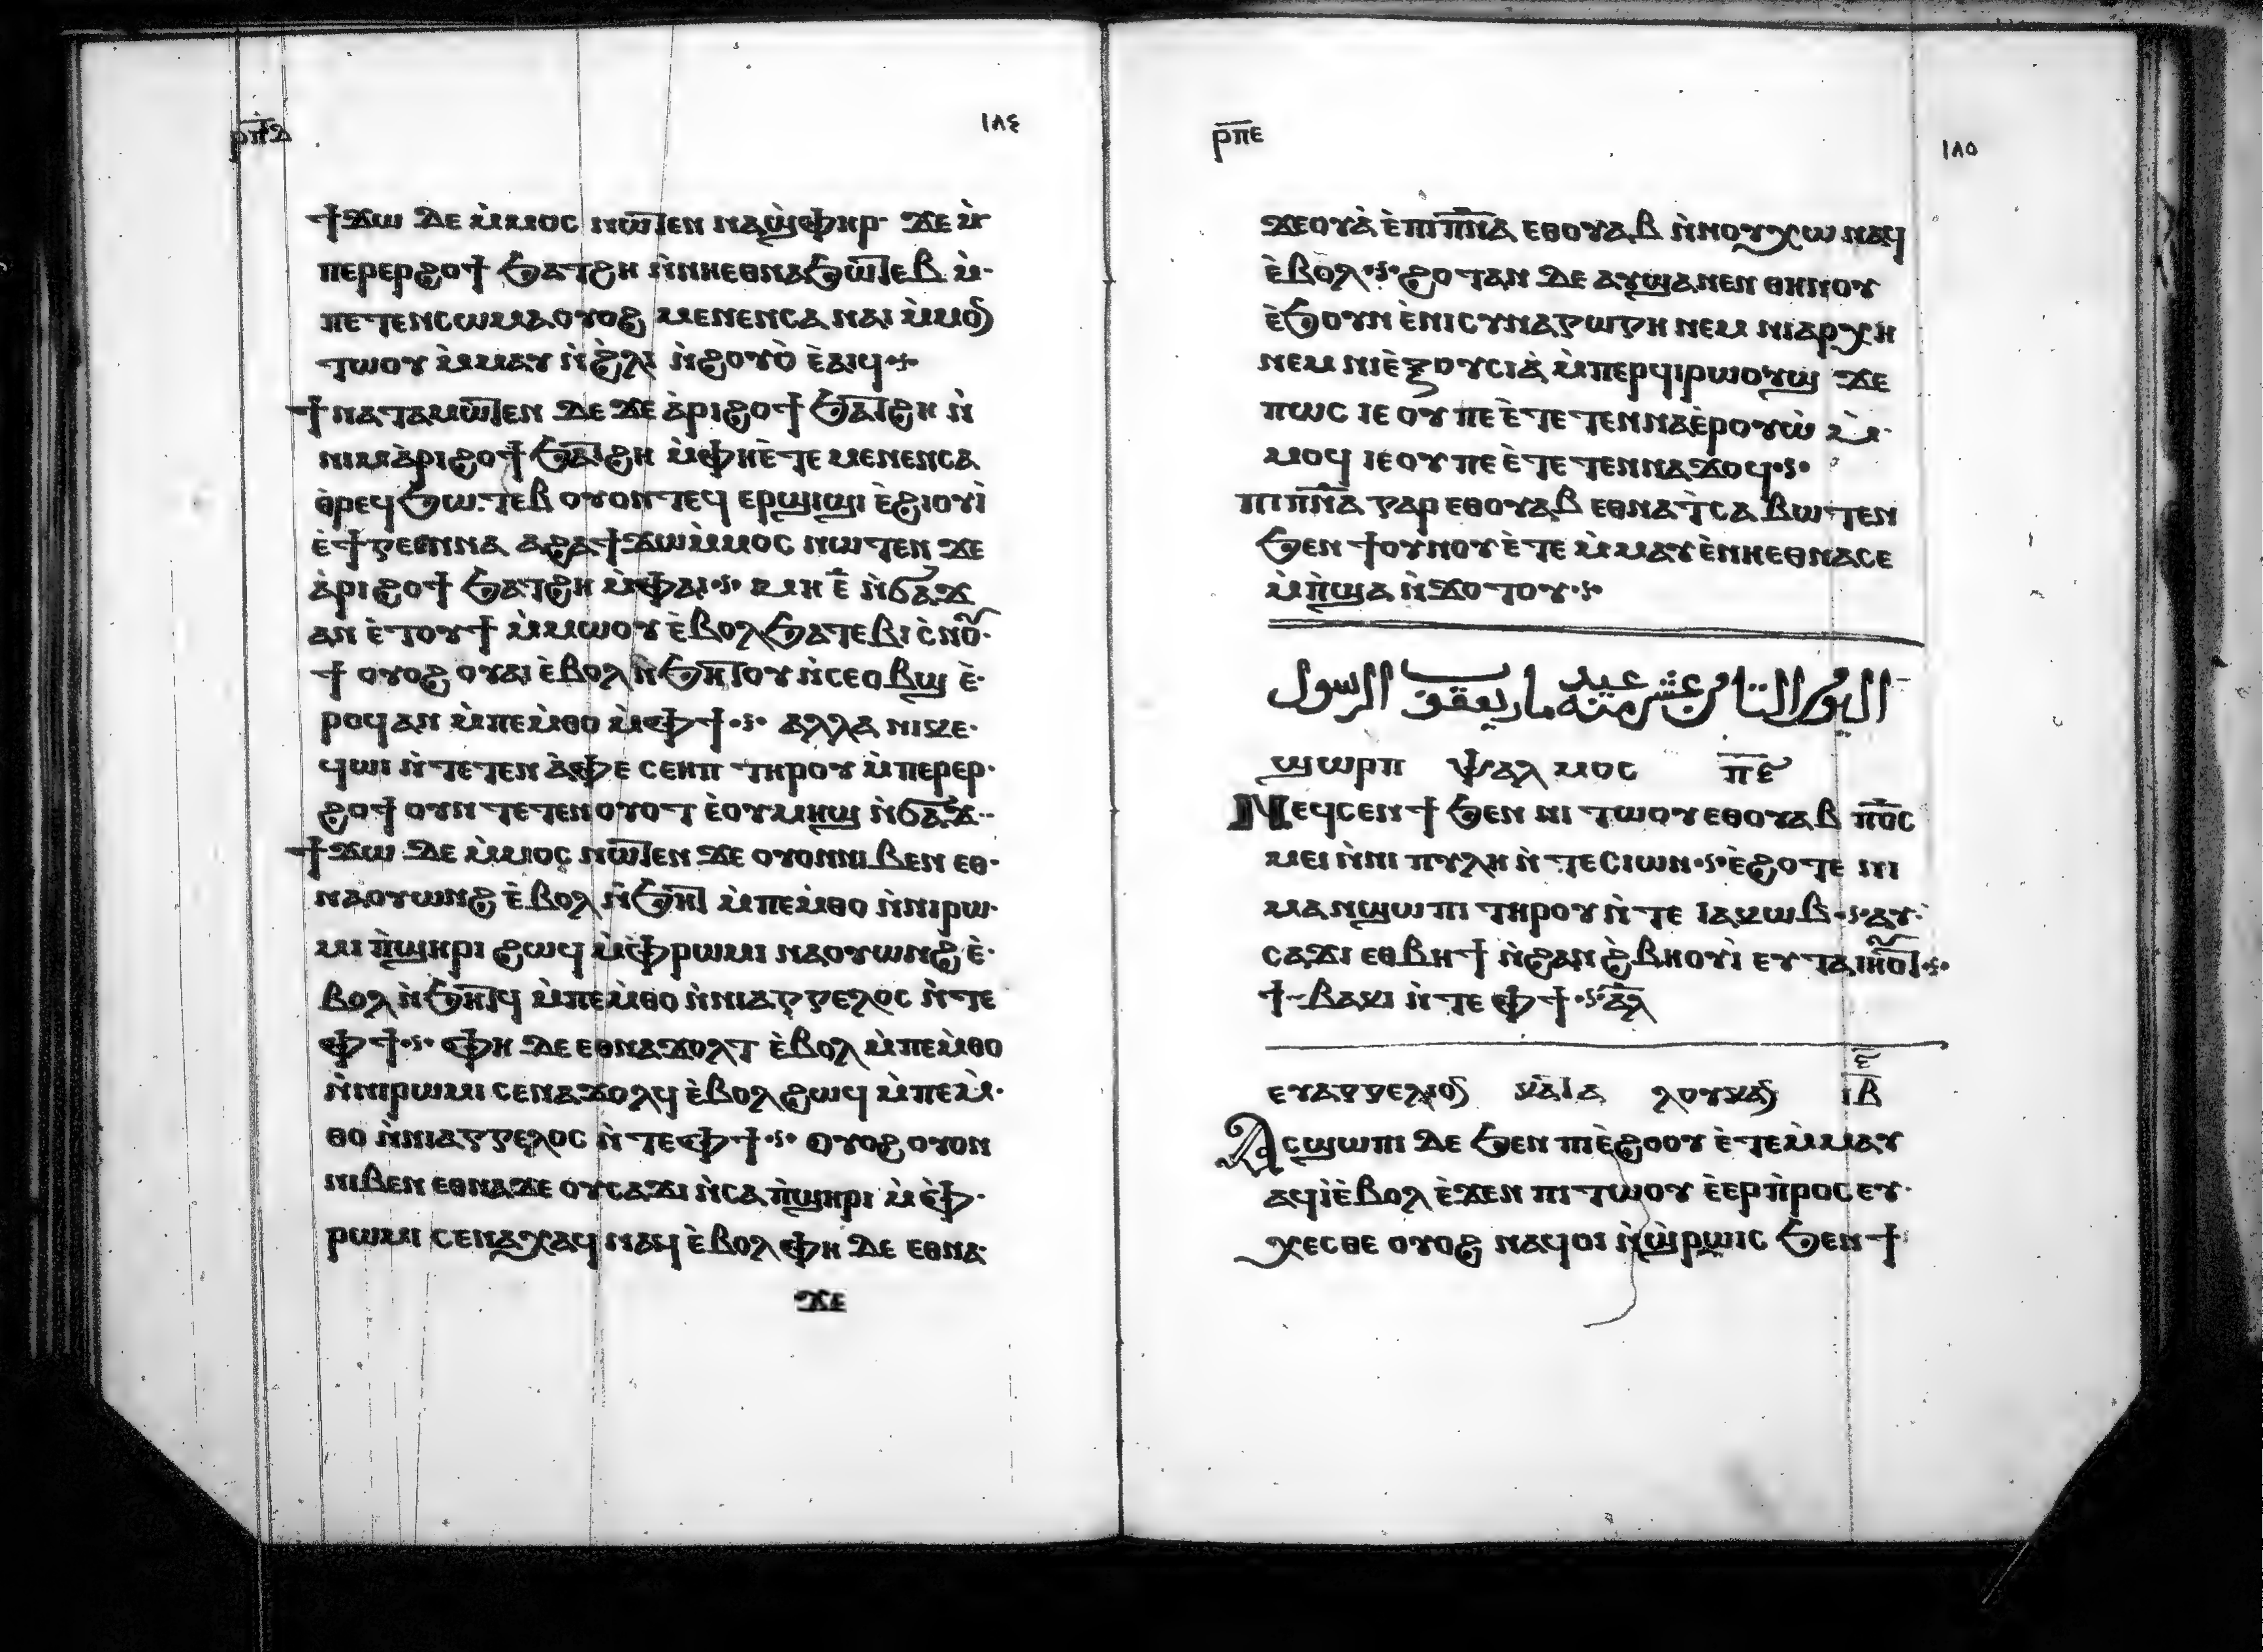 ⲣⲡⲇ ١٨٤
ϯϫⲱ ⲇⲉ ⲙ̀ⲙⲟⲥ ⲛⲱⲧⲉⲛ ⲛⲁϣ̀ⲫⲏⲣ ϫⲉ ⲙ̀
ⲡⲉⲣⲉⲣϩⲟϯ ϧⲁⲧϩⲏ ⲛ̀ⲛⲏⲉⲑⲛⲁϧⲱⲧⲉⲃ ⲙ̀
ⲡⲉⲧⲉⲛⲥⲱⲙⲁ ⲟⲩⲟϩ ⲙⲉⲛⲉⲛⲥⲁ ⲛⲁⲓ ⲙ̀ⲙⲟⲛ
ⲧⲱⲟⲩ ⲙ̀ⲙⲁⲩ ⲛ̀ϩ̀ⲗⲓ ⲛ̀ϩⲟⲩⲟ̀ ⲉ̀ⲁⲓϥ
ϯⲛⲁⲧⲁⲙⲱⲧⲉⲛ ⲇⲉ ϫⲉ ⲁ̀ⲣⲓϩⲟϯ ϧⲁⲧϩⲏ ⲛ̀
ⲛⲓⲙ ⲁ̀ⲣⲓϩⲟϯ ϧⲁⲧϩⲏ ⲙ̀ⲫⲏⲉ̀ⲧⲉ ⲙⲉⲛⲉⲛⲥⲁ
ⲑ̀ⲣⲉϥϧⲱⲧⲉⲃ ⲟⲩⲟⲛⲧⲉϥ ⲉⲣϣⲓϣⲓ ⲉ̀ϩⲓⲟⲩⲓ̀
ⲉ̀ϯⲅⲉⲉⲛⲛⲁ ⲁϩⲁ ϯϫⲱⲙ̀ⲙⲟⲥ ⲛⲱⲧⲉⲛ ϫⲉ
ⲁ̀ⲣⲓϩⲟϯ ϧⲁⲧϩⲏ ⲙ̀ⲫⲁⲓ ⲙⲏ ⲉ̅ ⲛ̀ϭⲁϫ
ⲁⲛ ⲉ̀ⲧⲟⲩϯ ⲙ̀ⲙⲱⲟⲩ ⲉ̀ⲃⲟⲗ ϧⲁⲧⲉⲃⲓ ⲥ̀ⲛⲟ̅
ϯ ⲟⲩⲟϩ ⲟⲩⲁⲓ ⲉ̀ⲃⲟⲗ ⲛ̀ϧⲏⲧⲟⲩ ⲛ̀ⲥⲉⲟⲃϣ ⲉ̀
ⲣⲟϥ ⲁⲛ ⲙ̀ⲡⲉⲙ̀ⲑⲟ ⲙ̀ⲫϯ ⲁⲗⲗⲁ ⲛⲓⲕⲉ
ϥⲱⲓ ⲛ̀ⲧⲉⲧⲉⲛ ⲁ̀ⲫⲉ ⲥⲉⲏⲡ ⲧⲏⲣⲟⲩ ⲙ̀ⲡⲉⲣⲉⲣ
ϩⲟϯ ⲟⲩⲛ ⲧⲉⲧⲉⲛⲟⲩⲟⲧ ⲉ̀ⲟⲩⲙⲏϣ ⲛ̀ϭⲁϫ
ϯϫⲱ ⲇⲉ ⲙ̀ⲙⲟⲥ ⲛⲱⲧⲉⲛ ϫⲉ ⲟⲩⲟⲛⲛⲓⲃⲉⲛ ⲉⲑ
ⲛⲁⲟⲩⲱⲛϩ ⲉ̀ⲃⲟⲗ ⲛ̀ϧⲏⲧ ⲙ̀ⲡⲉⲙ̀ⲑⲟ ⲛ̀ⲛⲓⲣⲱ
ⲙⲓ ⲡ̀ϣⲏⲣⲓ ϩⲱϥ ⲙ̀ⲫ̀ⲣⲱⲙⲓ ⲛⲁⲟⲩⲱⲛϩ ⲉ̀
ⲃⲟⲗ ⲛ̀ϧⲏⲧϥ ⲙ̀ⲡⲉⲙ̀ⲑⲟ ⲛ̀ⲛⲓⲁⲅⲅⲉⲗⲟⲥ ⲛ̀ⲧⲉ
ⲫϯ ⲫⲏ ⲇⲉ ⲉⲑⲛⲁϫⲟⲗⲧ ⲉ̀ⲃⲟⲗ ⲙ̀ⲡⲉⲙ̀ⲑⲟ
ⲛ̀ⲛⲓⲣⲱⲙⲓ ⲥⲉⲛⲁϫⲟⲗϥ ⲉ̀ⲃⲟⲗ ϩⲱϥ ⲙ̀ⲡⲉⲙ̀
ⲑⲟ ⲛ̀ⲛⲓⲁⲅⲅⲉⲗⲟⲥ ⲛ̀ⲧⲉⲫϯ ⲟⲩⲟϩ ⲟⲩⲟⲛ
ⲛⲓⲃⲉⲛ ⲉⲑⲛⲁϫⲉ ⲟⲩⲥⲁϫⲓ ⲛ̀ⲥⲁ ⲡ̀ϣⲏⲣⲓ ⲙ̀ⲫ̀
ⲣⲱⲙⲓ ⲥⲉⲛⲁⲭⲁϥ ⲛⲁϥ ⲉ̀ⲃⲟⲗ ⲫⲏ ⲇⲉ ⲉⲑⲛⲁ
ϫⲉ
ⲣⲡⲉ ١٨٥
ϫⲉⲟⲩⲁ̀ ⲉ̀ⲡⲓⲡ̅ⲛ̅ⲁ̅ ⲉⲑⲟⲩⲁⲃ ⲛ̀ⲛⲟⲩⲭⲱ ⲛⲁϥ
ⲉ̀ⲃⲟⲗ ϩⲟⲧⲁⲛ ⲇⲉ ⲁⲩϣⲁⲛⲉⲛ ⲑⲏⲛⲟⲩ
ⲉ̀ϧⲟⲩⲛ ⲉ̀ⲛⲓⲥⲩⲛⲁⲅⲱⲅⲏ ⲛⲉⲙ ⲛⲓⲁⲣⲭⲏ
ⲛⲉⲙ ⲛⲓⲉ̀ⲝⲟⲩⲥⲓⲁ̀ ⲙ̀ⲡⲉⲣϥⲓⲣⲱⲟⲩϣ ϫⲉ
ⲡⲱⲥ ⲓⲉ ⲟⲩ ⲡⲉ ⲉ̀ⲧⲉⲧⲉⲛⲛⲁⲉ̀ⲣⲟⲩⲱ̀ ⲙ̀
ⲙⲟϥ ⲓⲉ ⲟⲩ ⲡⲉ ⲉ̀ⲧⲉⲧⲉⲛⲛⲁϫⲟϥ
ⲡⲓⲡ̅ⲛ̅ⲁ̅ ⲅⲁⲣ ⲉⲑⲟⲩⲁⲃ ⲉⲑⲛⲁⲧ̀ⲥⲁⲃⲱⲧⲉⲛ
ϧⲉⲛ ϯⲟⲩⲛⲟⲩ ⲉ̀ⲧⲉ ⲙ̀ⲙⲁⲩ ⲉ̀ⲛⲏⲉⲑⲛⲁⲥⲉ
ⲙ̀ⲡ̀ϣⲁ ⲛ̀ϫⲟⲧⲟⲩ
اليوم الثامن عشر منه عيد مار يعقوب الرسول
ϣⲱⲣⲡ ⲯⲁⲗⲙⲟⲥ ⲡ̅ⲉ̅
Ⲛⲉϥⲥⲉⲛϯ ϧⲉⲛ ⲛⲓ ⲧⲱⲟⲩ ⲉⲑⲟⲩⲁⲃ ⲡ̅ⲟ̅ⲥ̅
ⲙⲉⲓ ⲛ̀ⲛⲓ ⲡⲩⲗⲏ ⲛ̀ⲧⲉ ⲥⲓⲱⲛ ⲉ̀ϩⲟⲧⲉ ⲛⲓ
ⲙⲁⲛϣⲱⲡⲓ ⲧⲏⲣⲟⲩ ⲛ̀ⲧⲉ ⲓⲁⲕⲱⲃ ⲁⲩ
ⲥⲁϫⲓ ⲉⲑⲃⲏϯ ⲛ̀ϩⲁⲛ ϩ̀ⲃⲏⲟⲩⲓ̀ ⲉⲩⲧⲁⲓⲏⲟⲩⲧ
ϯⲃⲁⲕⲓ ⲛ̀ⲧⲉ ⲫϯ ⲁⲗ
ⲉⲩⲁⲅⲅⲉⲗⲓⲟⲛ ⲕⲁⲧⲁ ⲗⲟⲩⲕⲁⲛ ⲝ̅ ⲓ̅ⲃ̅
Ⲁⲥϣⲱⲡⲓ ⲇⲉ ϧⲉⲛ ⲡⲓⲉ̀ϩⲟⲟⲩ ⲉ̀ⲧⲉⲙ̀ⲙⲁⲩ
ⲁϥⲓ̀ ⲉ̀ⲃⲟⲗ ⲉ̀ϫⲉⲛ ⲡⲓⲧⲱⲟⲩ ⲉ̀ⲉⲣⲡ̀ⲣⲟⲥⲉⲩ
ⲭⲉⲥⲑⲉ ⲟⲩⲟϩ ⲛⲁϥⲟⲓ ⲛ̀ϣ̀ⲣⲱⲓⲥ ϧⲉⲛϯ